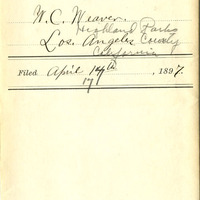 W. C. Weaver.
Highland Park
Los. Angeles County
California
Filed April 14th, 1897.
17